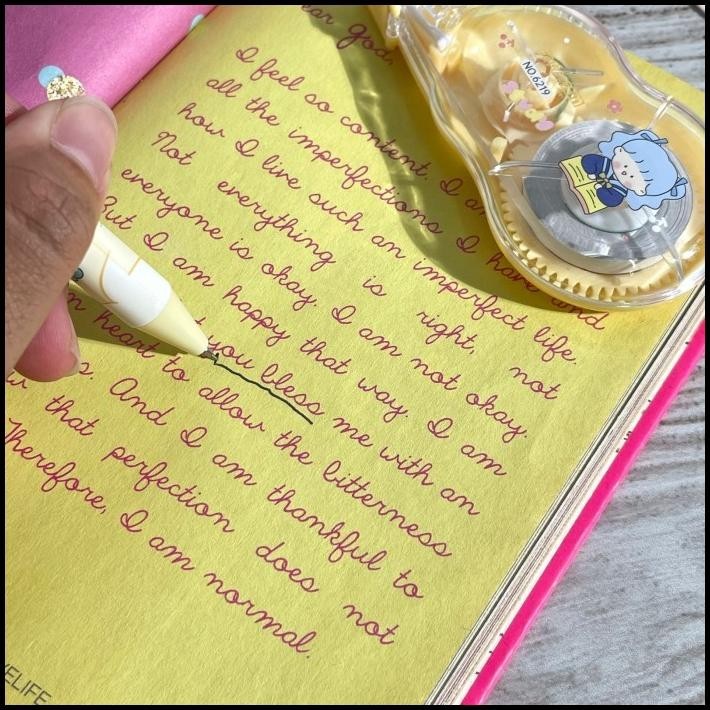 ear God,
I feel so content. I am
all the imperfections I have and
how I live such an imperfect life.
Not everything is right, not
everyone is okay. I am not okay.
But I am happy that way. I am
you bless me with an
heart to allow the bitterness
And I am thankful to
that perfection does not
Therefore, I am normal.
ELIFE
NO.6219